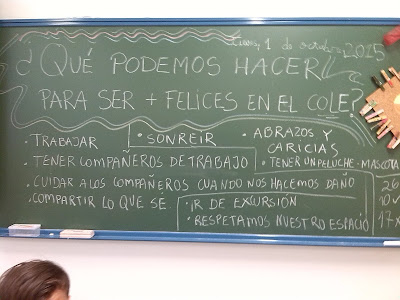 Lunes, 1 de octubre 2015
¿QUÉ PODEMOS HACER
PARA SER + FELICES EN EL COLE?
· TRABAJAR
· SONREIR
· ABRAZOS Y
CARICIAS
· TENER COMPAÑEROS DE TRABAJO
· TENER UN PELUCHE - MASCOTA
· CUIDAR A LOS COMPAÑEROS CUANDO NOS HACEMOS DAÑO
· COMPARTIR LO QUE SÉ.
· IR DE EXCURSIÓN
· RESPETAMOS NUESTRO ESPACIO
26
10
17